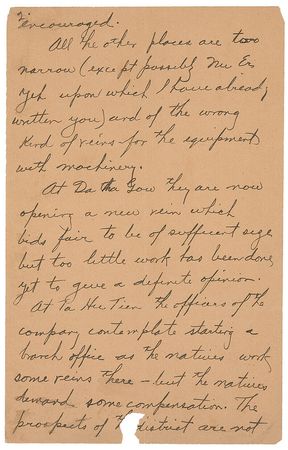 encouraged.
All the other places are too
narrow (except possibly Nu Er
Yeh upon which I have already
written you) and of the wrong
kind of veins for the equipment
with machinery.
At Da Tha Gow they are now
opening a new vein which
bids fair to be of sufficent size
but too little work has been done
yet to give a definite opinion.
At Ta Hu Tien the officers of the
company contemplate starting a
branch office as the natives work
some veins there – but the natives
demand some compensation. The
prospects of the district are not